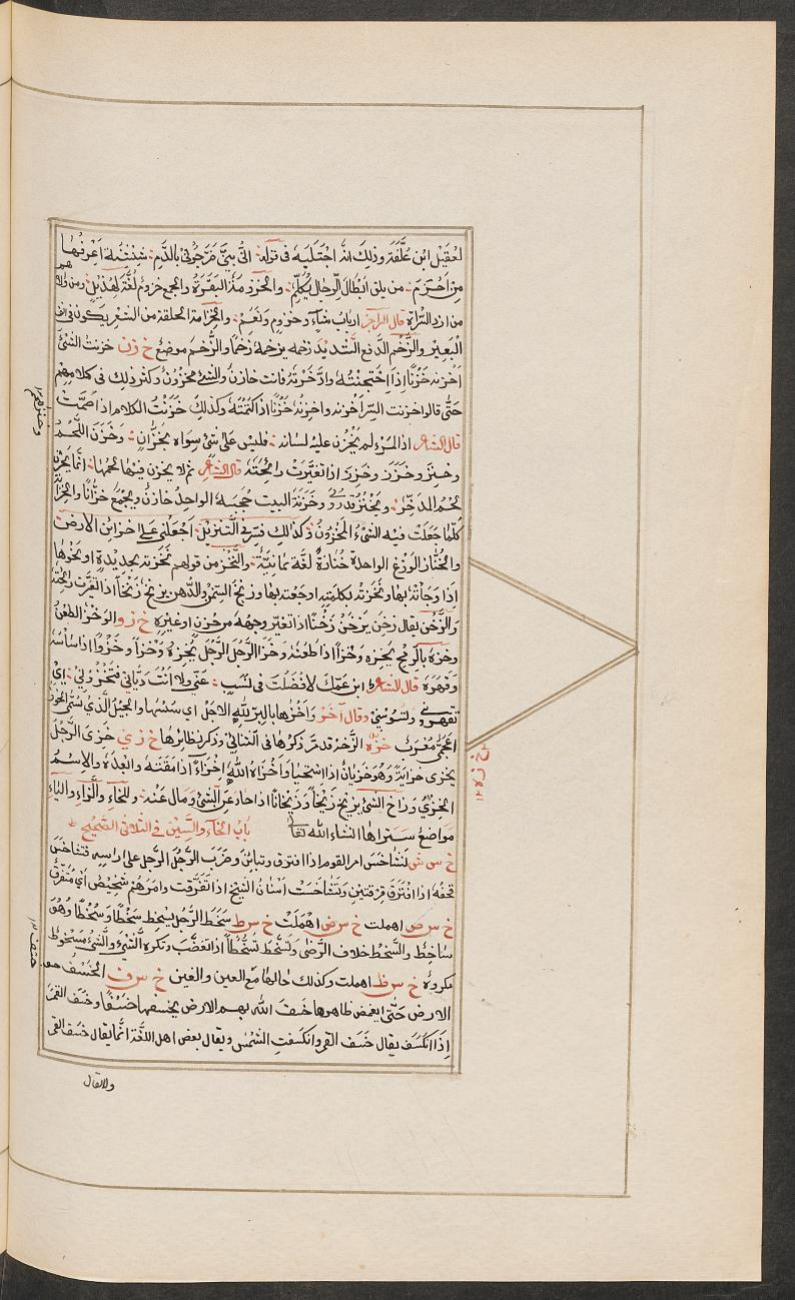 لعقيل ابن علّفة وذلك انّه اجتلبه فى قوله انّ بنىّ ضرّجونى بالدّم شنشنة اعرفها
من اخزم من يلق ابطال الرّجال يكلم والخزومة البقرة والجمع خزوم لغة لهذيل ومن ولاهم
من ازد السّراة قال الراجز ارباب شاء وخزوم ونعم والخزامة الحلقة من الشعر يكون فى انف
البعير والزّخم الدفع الشّديد زخمه يزخمه زخما والزّخم موضع خ ز ن خزنت الشئ
اخزنه خزنًا اذا احتجنته وادّخرته فانت خازن والشئ مخزون وكثر ذلك فى كلامهم
حتّى قالوا خزنت السرّ اخزنه واخزنه خزنًا اذا كتمته وكذلك خزنت الكلام اذا اصمتّ
قال الشاعر اذا المرء لم يخزن عليه لسانه فليس على شئ سواه بخزّان وخزن اللّحم
وخنز وخزن اذا تغيّرت رائحته قال الشاعر ثم لا يخزن فينا لحمها انّما يخزن
لحم المدّخر وخزنة البيت حجبه الواحد خازن ويجمع خزّانًا والخزانة
كلّما جعلت فيه الشئ المخزون وكذلك فسّر فى التّنزيل اجعلنى على خزائن الارض
والخنّاز الوزغ الواحدة خنازة لغة يمانيّة والنّخز من قولهم نخزته بحديدة او نحوها
اذا وجأته بها ونخزته بكلمة اذا اوجعته بها وزنخ السّمن والدّهن يزنخ زنخًا اذا تغيّرت رائحته
والزّخن يقال زخن يزخن زخنًا اذا تغيّر وجهه من حزن او غيره خ ز و والوخز الطعن
وخزه بالرّمح يخزه وخزًا اذا طعنه وخزا الرّجل الرّجل يخزوه خزوًا اذا ساسه
وقهره قال الشاعر لاه ابن عمّك لا افضلت فى نسب عنّى ولا انت ديّانى فتخزونى اى
تقهرنى وتسوسنى وقال آخر واخزها بالبرّ لله الاجلّ اى سسها والجيل الذى يسمّى الخوز
اعجمىّ معرب خ ز ه الزّخر قد مرّ ذكرها فى الثنائى وذكر نظائرها خ ز ي خزى الرّجل
يخزى خزاية وهو خزيان اذا استحيا واخزاه الله اخزاءً اذا مقته وابعده والاسم
الخزى وزاخ الشئ يزيخ زيخًا وزيخانًا اذا حاد عن الشئ ومال عنه وللخاء والزاء والياء
مواضع ستراها انشاء الله تعالى باب الخاء والسّين فى الثلاثى الصّحيح
خ س ش تشاخس امر القوم اذا افترق وتباين وضرب الرّجل الرّجل على راسه فتشاخس
قحفه اذا افترق فرقتين وتشاخست اسنان الشيخ اذا تفرّقت وامرهم شخيص اى متفرّق
خ س ص اهملت خ س ض اهملت خ س ط سخط الرّجل يسخط سخطًا وسخطًا وهو
ساخط والسّخط خلاف الرّضى وتسخّط تسخّطًا اذا تغضّب وتكرّه الشئ والشئ مسخوط
مكروه خ س ظ اهملت وكذلك حالهما مع العين والغين خ س ف الخسف خسف
الارض حتّى يغمض ظاهرها خسف الله بهم الارض يخسفها خسفًا وخسف القمر
اذا انكسف يقال خسف القمر وانكسفت الشّمس ويقال بعض اهل اللّغة انّما يقال خسف القمر
ولا يقال